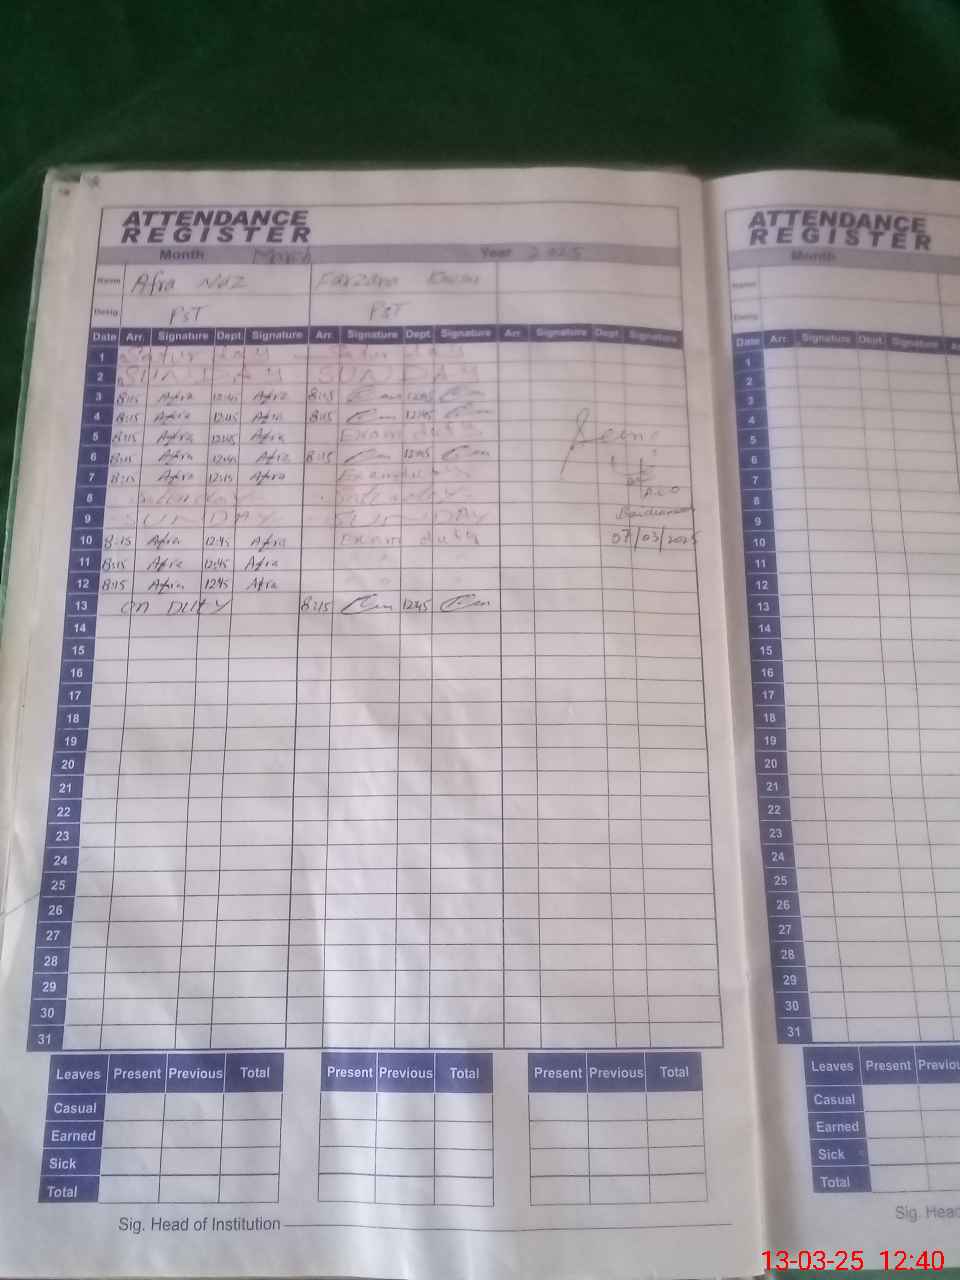 ATTENDANCE
REGISTER
Month March Year 2025
Name Afra Naz Farzana
Desig PST PST
Date Arr. Signature Dept Signature Arr. Signature Dept Signature Arr. Signature Dept Signature
1 Satur day Satur day
2 SUNDAY SUNDAY
3 8:15 Afra 12:45 Afra 8:15 12:45
4 8:15 Afra 12:45 Afra 8:15 12:45
5 8:15 Afra 12:45 Afra Exam duty
6 8:15 Afra 12:45 Afra 8:15 12:45
7 8:15 Afra 12:45 Afra Exam duty
8 Saturday Saturday
9 SUNDAY SUNDAY
10 8:15 Afra 12:45 Afra Exam duty
11 8:15 Afra 12:45 Afra
12 8:15 Afra 12:45 Afra
13 ON DUTY 8:15 12:45
14
15
16
17
18
19
20
21
22
23
24
25
26
27
28
29
30
31
07/03/2025
Leaves Present Previous Total Present Previous Total Present Previous Total
Casual
Earned
Sick
Total
Sig. Head of Institution
ATTENDANCE
REGISTER
Month
Name
Desig
Date Arr. Signature Dept Signature
1
2
3
4
5
6
7
8
9
10
11
12
13
14
15
16
17
18
19
20
21
22
23
24
25
26
27
28
29
30
31
Leaves Present
Casual
Earned
Sick
Total
Sig.
13-03-25 12:40